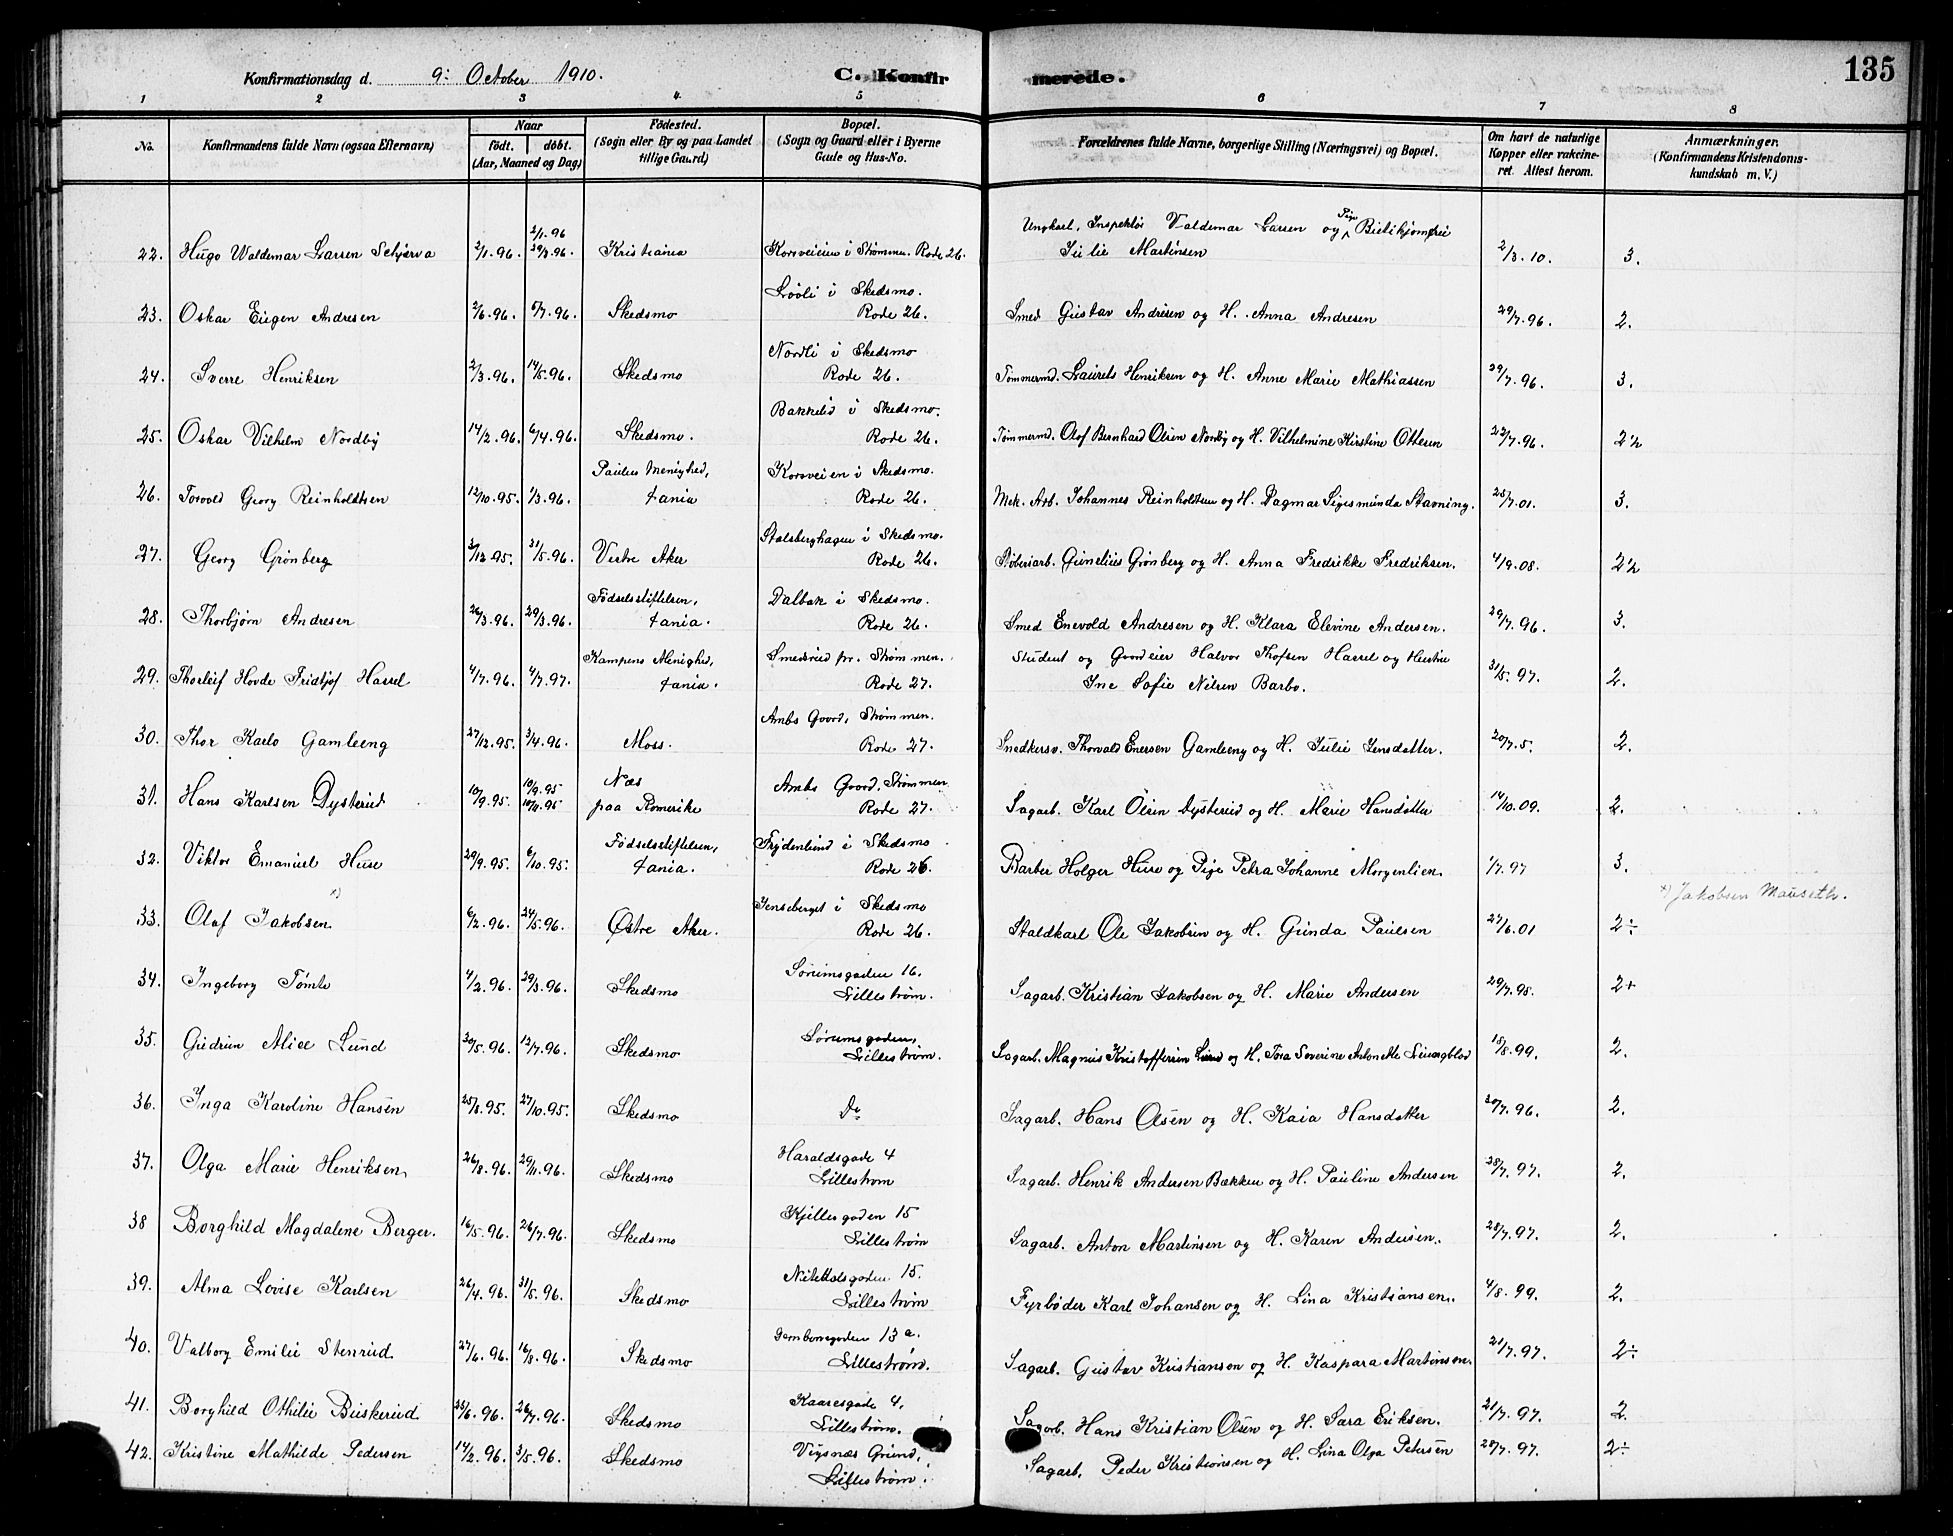 Konfirmationsdag d. 9: October 1910. C. Konfirmerede. 135
1 2 3 4 5 6 7 8
No. Konfirmandens fulde Navn (ogsaa Efternavn) Naar født. døbt. (Aar, Maaned og Dag) Fødested. (Sogn eller By og paa Landet tillige Gaard) Bopæl. (Sogn og Gaard eller i Byerne Gade og Hus-No. Forældrenes fulde Navne, borgerlige Stilling (Næringsvei) og Bopæl. Om havt de naturlige Kopper eller vakcineret. Attest herom. Anmærkninger. (Konfirmandens Kristendomskundskab m. V.)
22. Hugo Waldemar Larsen Schjerva 2/1.96. 2/1.96 29/3.96. Kristiania Korsveien i Strømmen. Rode 26. Ungkarl, Inspektør Valdemar Larsen og Pige Julie Martinsen 2/3.10. 3.
23. Oskar Eugen Andresen 2/6.96. 5/7.96. Skedsmo Løvli i Skedsmo. Rode 26. Smed Gustav Andresen og H. Anna Andresen 29/7.96. 2.
24. Sverre Henriksen 2/3.96. 14/5.96. Skedsmo Nordli i Skedsmo Rode 26. Tømmermd. Laurets Henriksen og H. Anne Marie Mathiassen 29/7.96. 3.
25. Oskar Vilhelm Nordby 14/2.96. 6/4.96. Skedsmo. Bakkelid i Skedsmo. Rode 26. Tømmermd. Olof Bernhard Olsen Nordby og H. Vilhelmine Kirstine Ottesen 22/7.96. 2½
26. Torvold Georg Reinholdtsen 12/10.95. 1/3.96. Paulus Menighed, tania Korsveien i Skedsmo. Rode 26. Mek. Arb. Johannes Reinholdtsen og H. Dagmar Sigismunda Stavning. 25/7.01. 3.
27. Georg Grønberg 3/12.95. 31/5.96. Vestre Aker Stalsberghagen i Skedsmo. Rode 26. Støberiarb. Gunelius Grønberg og H. Anna Fredrikke Fredriksen. 4/9.08. 2½
28. Thorbjørn Andresen 26/3.96. 29/3.96. Fødselsstiftelsen, tania. Dalbak i Skedsmo. Rode 26. Smed Enevold Andresen og H. Klara Elevine Andersen. 29/7.96. 3.
29. Thorleif Hovde Fridtjof Hassel 4/7.96. 4/7.97. Kampens Menighed, tania. Smedsrud pr. Strømmen. Rode 27. Student og Gaardeier Halvor Thofsen Hassel og Hustru Ine Sofie Nilsen Barbo. 31/5.97. 2.
30. Thor Karlo Gamleeng 27/12.95. 3/4.96. Moss. Ambs Goord, Strømmen. Rode 27. Snedkersv. Thorvald Enersen Gamleeng og H. Julie Jensdatter. 20/7.5. 2.
31. Hans Karlsen Dysterud 10/9.95. 10/9.95 10/11.95 Næs paa Romerike Ambs Goord, Strømmen Rode 27. Sagarb. Karl Olsen Dysterud og H. Marie Hansdatter 14/10.09. 2.
32. Viktor Emanuel Huse 29/9.95. 6/10.95. Fødselsstiftelsen, tania. Frydenlund i Skedsmo Rode 26. Barber Holger Huse og Pige Petra Johanne Morgenlien. 1/7.97 3.
33. Olaf Jakobsen x) 6/2.96. 24/5.96. Østre Aker. Jenseberget i Skedsmo Rode 26. Staldkarl Ole Jakobsen og H. Gunda Paulsen 27/6.01 2÷ x) Jakobsen Mauseth.
34. Ingeborg Tømte 4/2.96. 29/3.96. Skedsmo Sørumsgaden 16. Lillestrøm. Sagarb. Kristian Jakobsen og H. Marie Andersen 29/7.98. 2+
35. Gudrun Alice Lund 30/5.96. 12/7.96. Skedsmo Sørumsgaden, Lillestrøm. Sagarb. Magnus Kristoffersen Lund og H. Tora Severine Antonette Ljungblod 18/8.99. 2.
36. Inga Karoline Hansen 25/8.95. 27/10.95. Skedsmo Do Sagarb. Hans Olsen og H. Kaia Hansdatter 30/7.96. 2.
37. Olga Marie Henriksen 26/8.96. 29/11.96. Skedsmo Haraldsgade 4 Lillestrøm Sagarb. Henrik Andersen Bakken og H. Pauline Andersen 28/7.97. 2.
38 Borghild Magdalene Berger. 16/5.96. 26/7.96. Skedsmo Kjellesgaden 15 Lillestrøm Sagarb. Anton Martinsen og H. Karen Andersen. 28/7.97. 2.
39. Alma Lovise Karlsen 26/4.96. 31/5.96. Skedsmo Nitteddalsgaden 15. Lillestrøm Fyrbøder Karl Johansen og H. Lina Kristiansen. 4/8.99. 2.
40. Valborg Emilie Stenrud 27/6.96. 16/8.96. Skedsmo Jernbanegaden 13 a. Lillestrøm. Sagarb. Gustav Kristiansen og H. Kaspara Martinsen. 21/7.97. 2÷
41. Borghild Othilie Buskerud 25/6.96. 26/7.96. Skedsmo Kaaresgade 4, Lillestrøm. Sagarb. Hans Kristian Olsen og H. Sara Eriksen. 21/7.97. 2.
42. Kristine Mathilde Pedersen 14/2.96. 3/5.96. Skedsmo Vigsnæs Grund, Lillestrøm. Sagarb. Peder Kristiansen og H. Lina Olga Petersen 28/7.97. 2÷